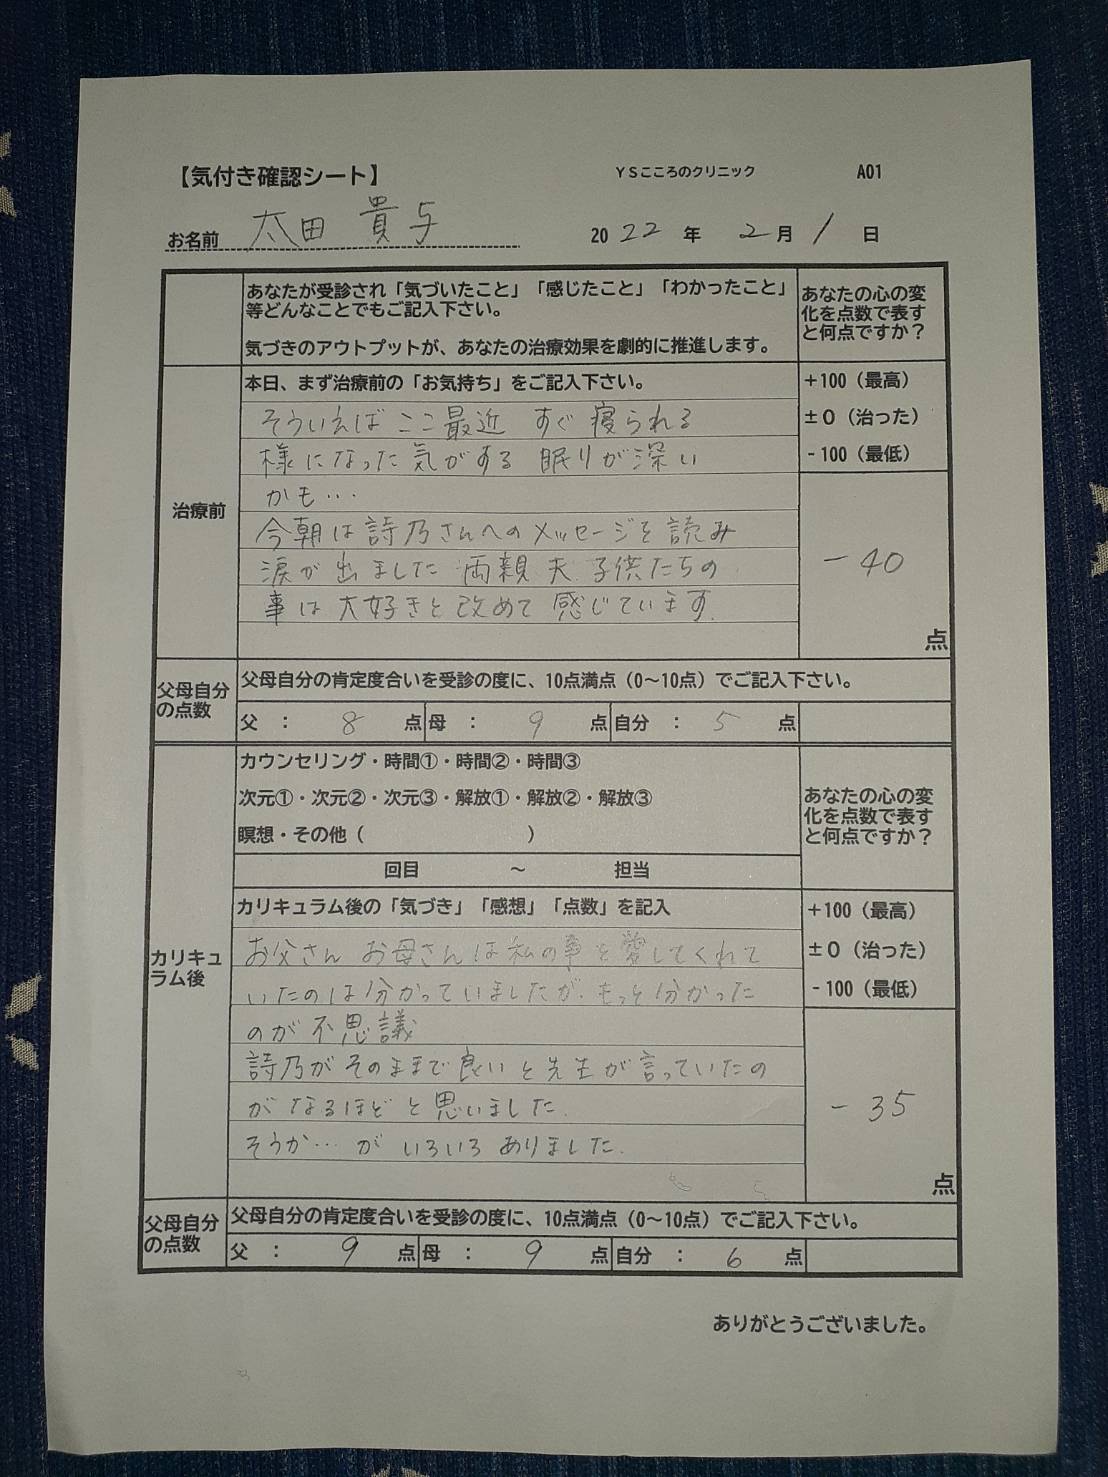 【気付き確認シート】 YSこころのクリニック A01
お名前 太田 貴与 2022年 2月 1日
あなたが受診され「気づいたこと」「感じたこと」「わかったこと」
等どんなことでもご記入下さい。
気づきのアウトプットが、あなたの治療効果を劇的に推進します。
あなたの心の変
化を点数で表す
と何点ですか?
治療前
本日、まず治療前の「お気持ち」をご記入下さい。
そういえば ここ最近 すぐ寝られる
様になった気がする 眠りが深い
かも…
今朝は詩乃さんへのメッセージを読み
涙が出ました 両親 夫 子供たちの
事は大好きと改めて感じています.
+100(最高)
±0(治った)
-100(最低)
-40
点
父母自分
の点数
父母自分の肯定度合いを受診の度に、10点満点(0~10点)でご記入下さい。
父 : 8 点 母 : 9 点 自分 : 5 点
カリキュ
ラム後
カウンセリング・時間①・時間②・時間③
次元①・次元②・次元③・解放①・解放②・解放③
瞑想・その他( )
回目 ~ 担当
あなたの心の変
化を点数で表す
と何点ですか?
カリキュラム後の「気づき」「感想」「点数」を記入
お父さん お母さんは私の事を愛してくれて
いたのは分かっていましたが.もっと分かった
のが不思議
詩乃がそのままで良いと先生が言っていたの
がなるほどと思いました.
そうか…がいろいろありました.
+100(最高)
±0(治った)
-100(最低)
-35
点
父母自分
の点数
父母自分の肯定度合いを受診の度に、10点満点(0~10点)でご記入下さい。
父 : 9 点 母 : 9 点 自分 : 6 点
ありがとうございました。